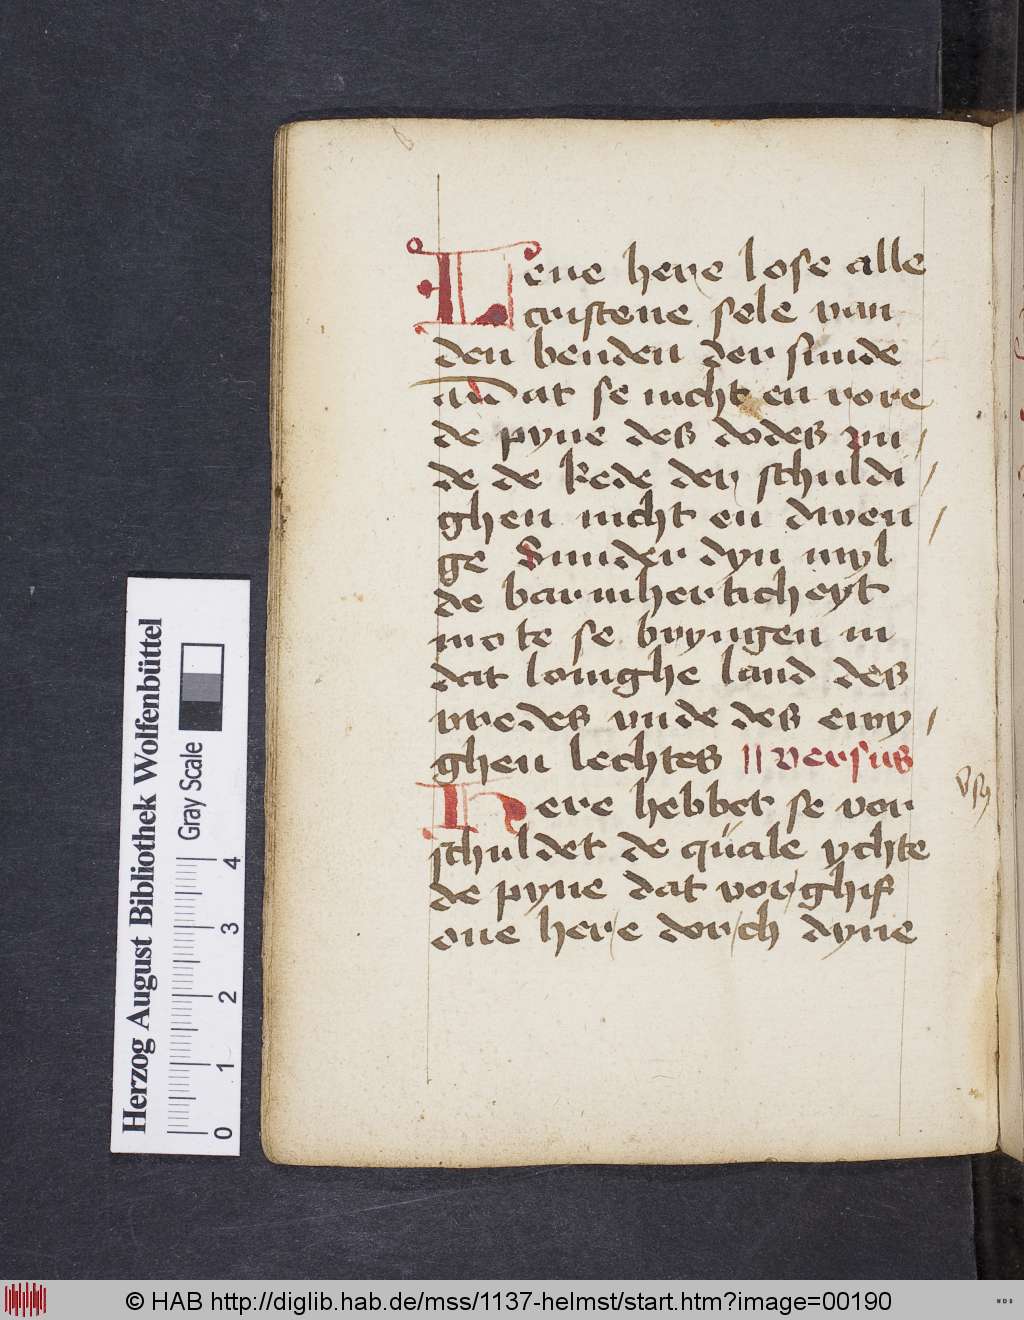 Leue here lose alle
cristene sele van
den benden der sunde
uñ dat se nicht en vore
de pyne des dodes vn/
de de kede der schuldi/
ghen nicht en dwen/
ge Sunder dyn myl
de barmherticheyt
mote se bryngen in
dat louighe land des
vredes vnde des ewy/
ghen lechtes || versus
Here hebbet se vor
schuldet de quale ychte
de pyne dat vorghif
one here dorch dyne
Herzog August Bibliothek Wolfenbüttel
Gray Scale
0 1 2 3 4
© HAB http://diglib.hab.de/mss/1137-helmst/start.htm?image=00190